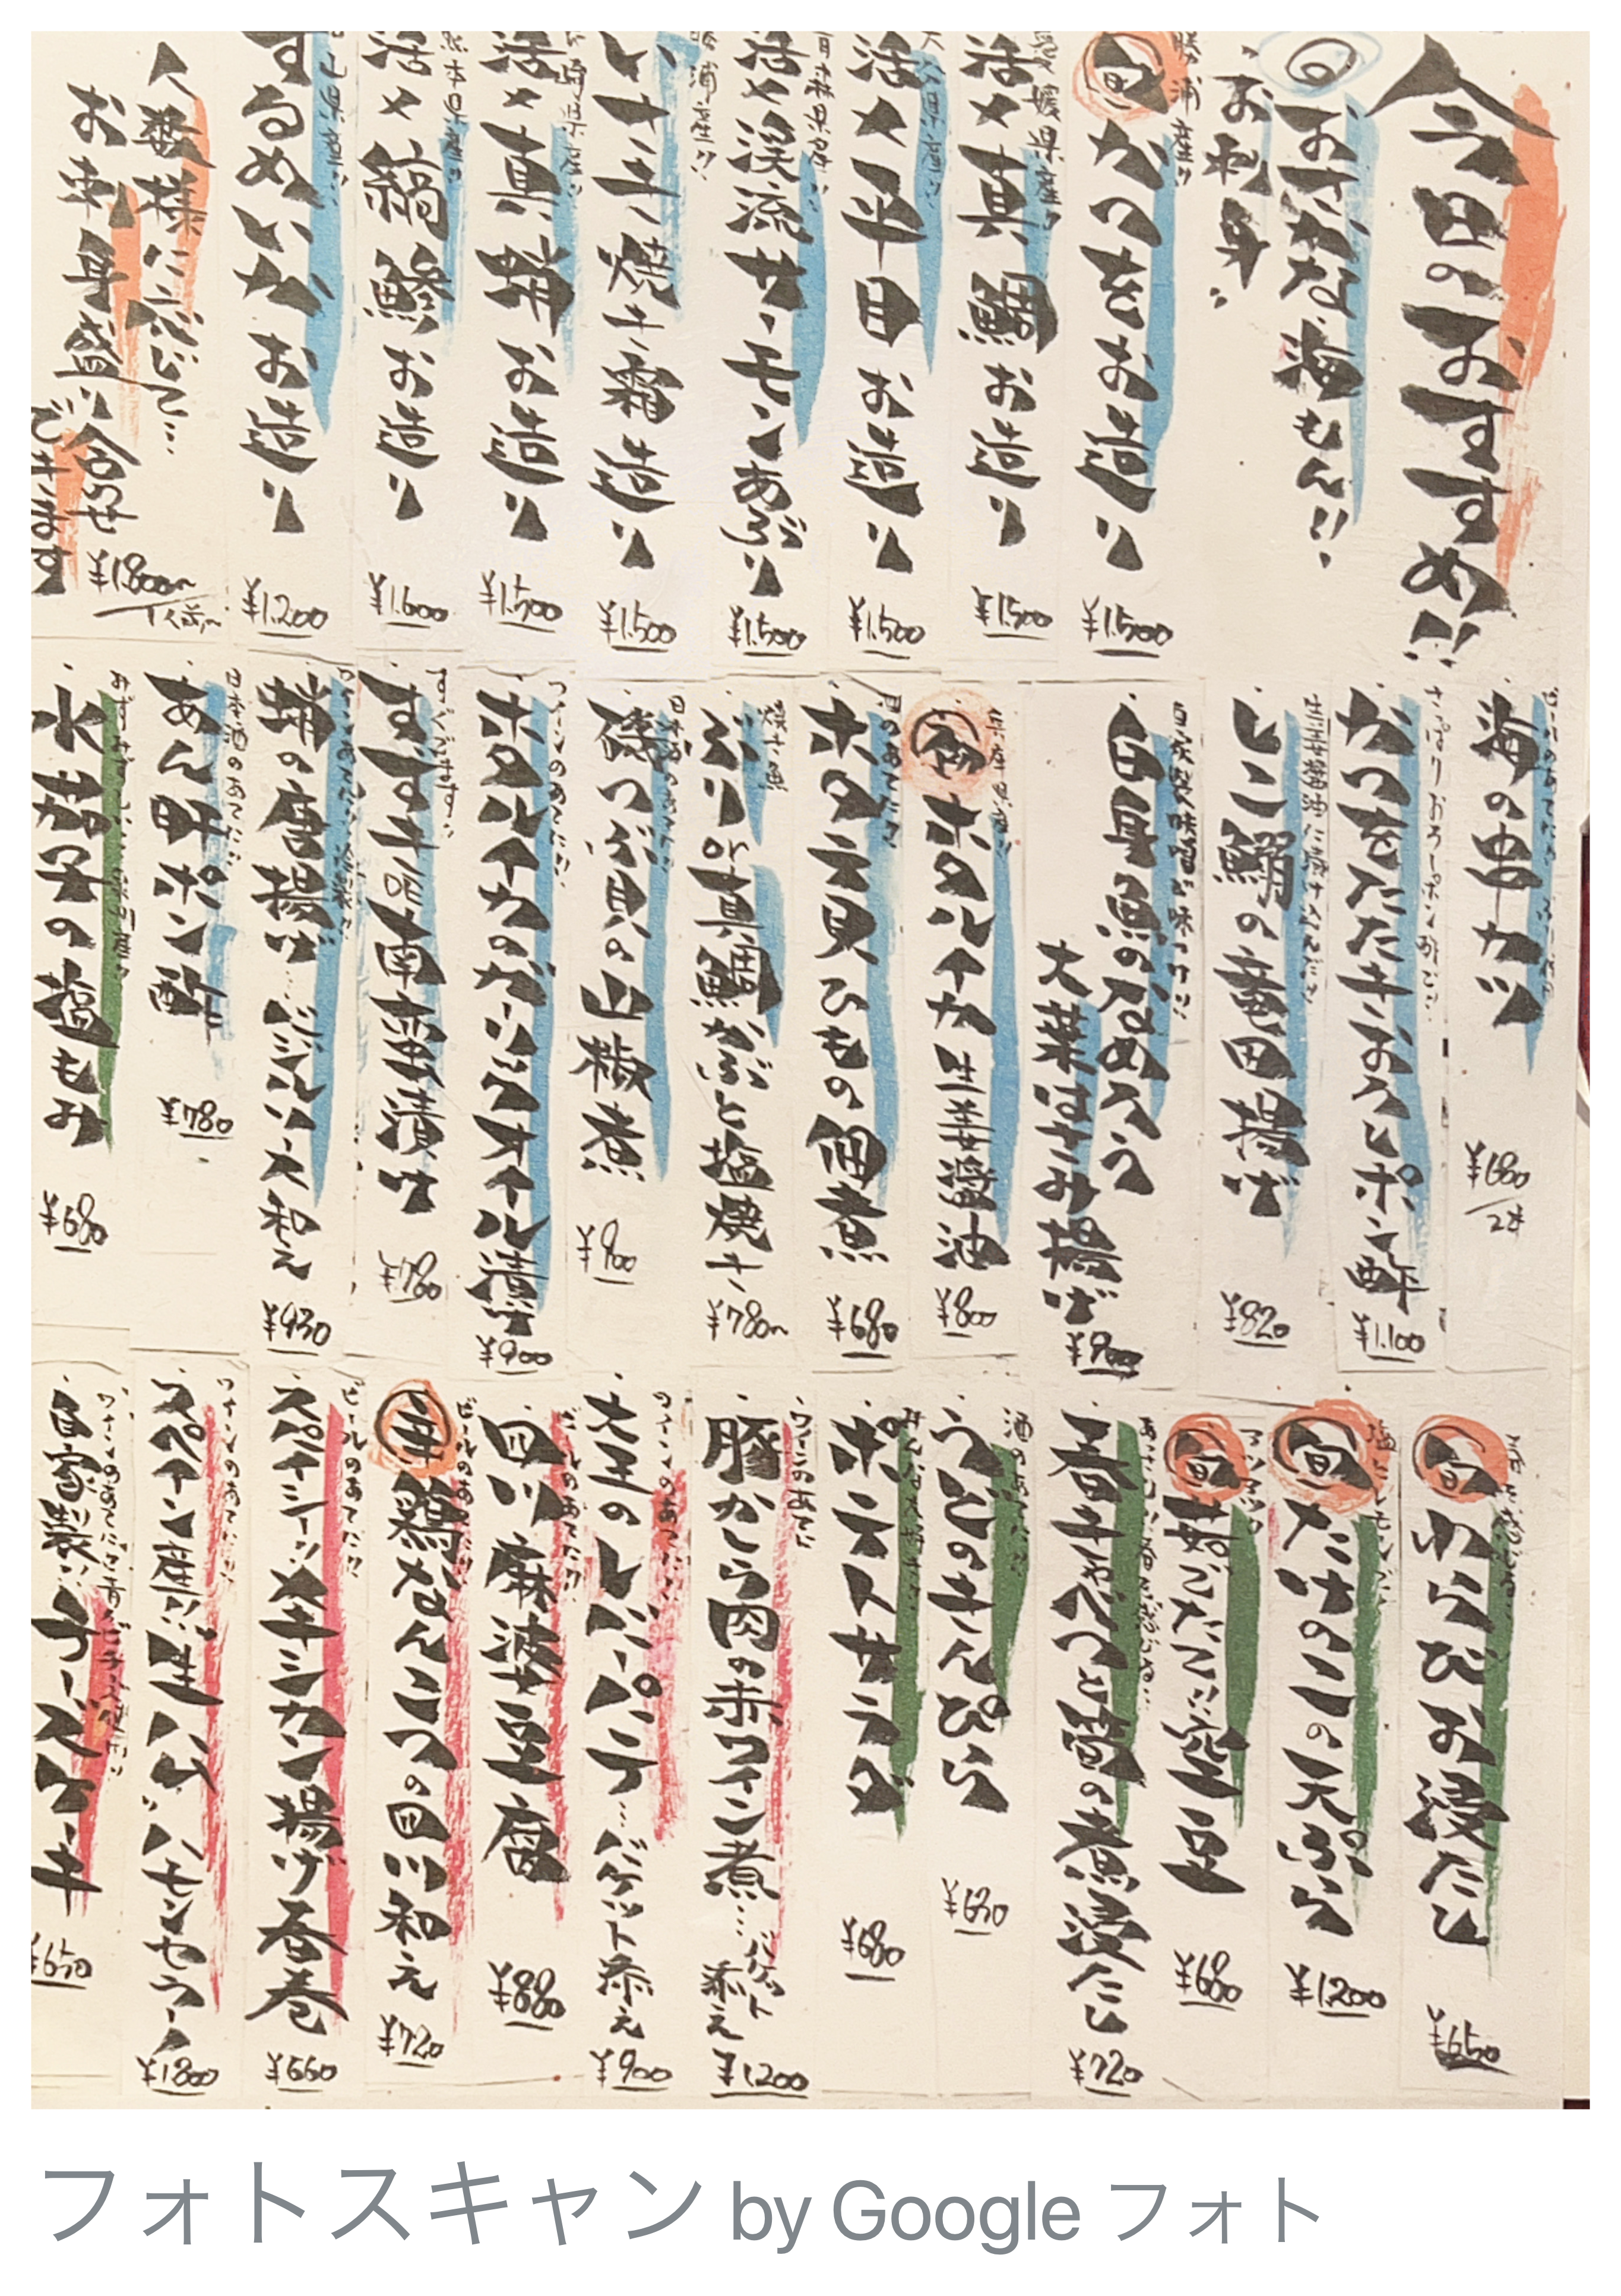 今日のおすすめ!!
おさかな海もん!!
お刺身
勝浦産!!
旬 かつをお造り
¥1.500
愛媛県産!!
活〆真鯛お造り
¥1.500
活〆平目お造り
¥1.500
青森県産!!
活〆渓流サーモンあぶり
¥1.500
勝浦産!!
いサキ焼き霜造り
¥1.500
活〆真蛸お造り
¥1.500
熊本県産!!
活〆縞鯵お造り
¥1.600
するめいかお造り
¥1.200
人数様に応じて…
お刺身盛り合せ
できます
¥1.800〜
1人前〜
海の串カツ
¥680
2本
さっぱりおろしポン酢で!!
かつをたたきおろしポン酢
¥1.100
生姜醤油に漬け込んだ!!
しこ鰯の竜田揚げ
¥820
白身魚のなめろう
大葉はさみ揚げ
¥900
兵庫県産!!
ホタルイカ生姜醤油
¥800
酒のあてに!!
ホタテ貝ひもの佃煮
¥680
焼き魚
ぶりor真鯛かぶと塩焼き
¥780〜
日本酒のあてに!!
磯つぶ貝の山椒煮
¥900
ワインのあてに!!
ホタルイカのガーリックオイル漬け
¥900
すぐでます!!
すずき南蛮漬け
¥780
蛸の唐揚げ…バジルソース和え
¥930
日本酒のあてに!!
あん肝ポン酢
¥780
水茄子の塩もみ
¥680
旬 わらびお浸たし
¥650
旬 たけのこの天ぷら
¥1200
旬 茹でたて!!空豆
¥680
春キャベツと筍の煮浸たし
¥720
酒のあてに!!
うどのきんぴら
¥630
ポテトサラダ
¥680
ワインのあてに
豚かしら肉の赤ワイン煮…バケット添え
¥1200
ワインのあてに!!
大王のレバーパテ…バケット添え
¥900
四川麻婆豆腐
¥880
ビールのあてに!!
辛 鶏なんこつの四川和え
¥720
ビールのあてに!!
スパイシー!!メキシカン揚げ春巻
¥660
ワインのあてに!!
スペイン産!!生ハム!!ハモンセラーノ
¥1800
自家製!!チーズケーキ
¥650
フォトスキャン by Google フォト